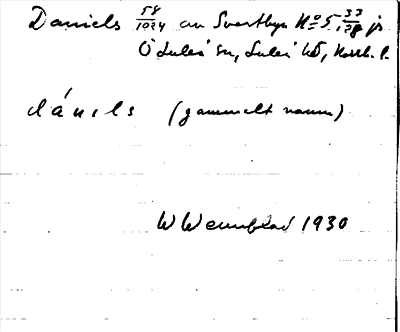 Daniels 58/1024 av Svartbyn No 5 33/128 js
Ö Luleå sn, Luleå hd, Norrb. l.
dániels (gammalt namn)
W Wennblad 1930